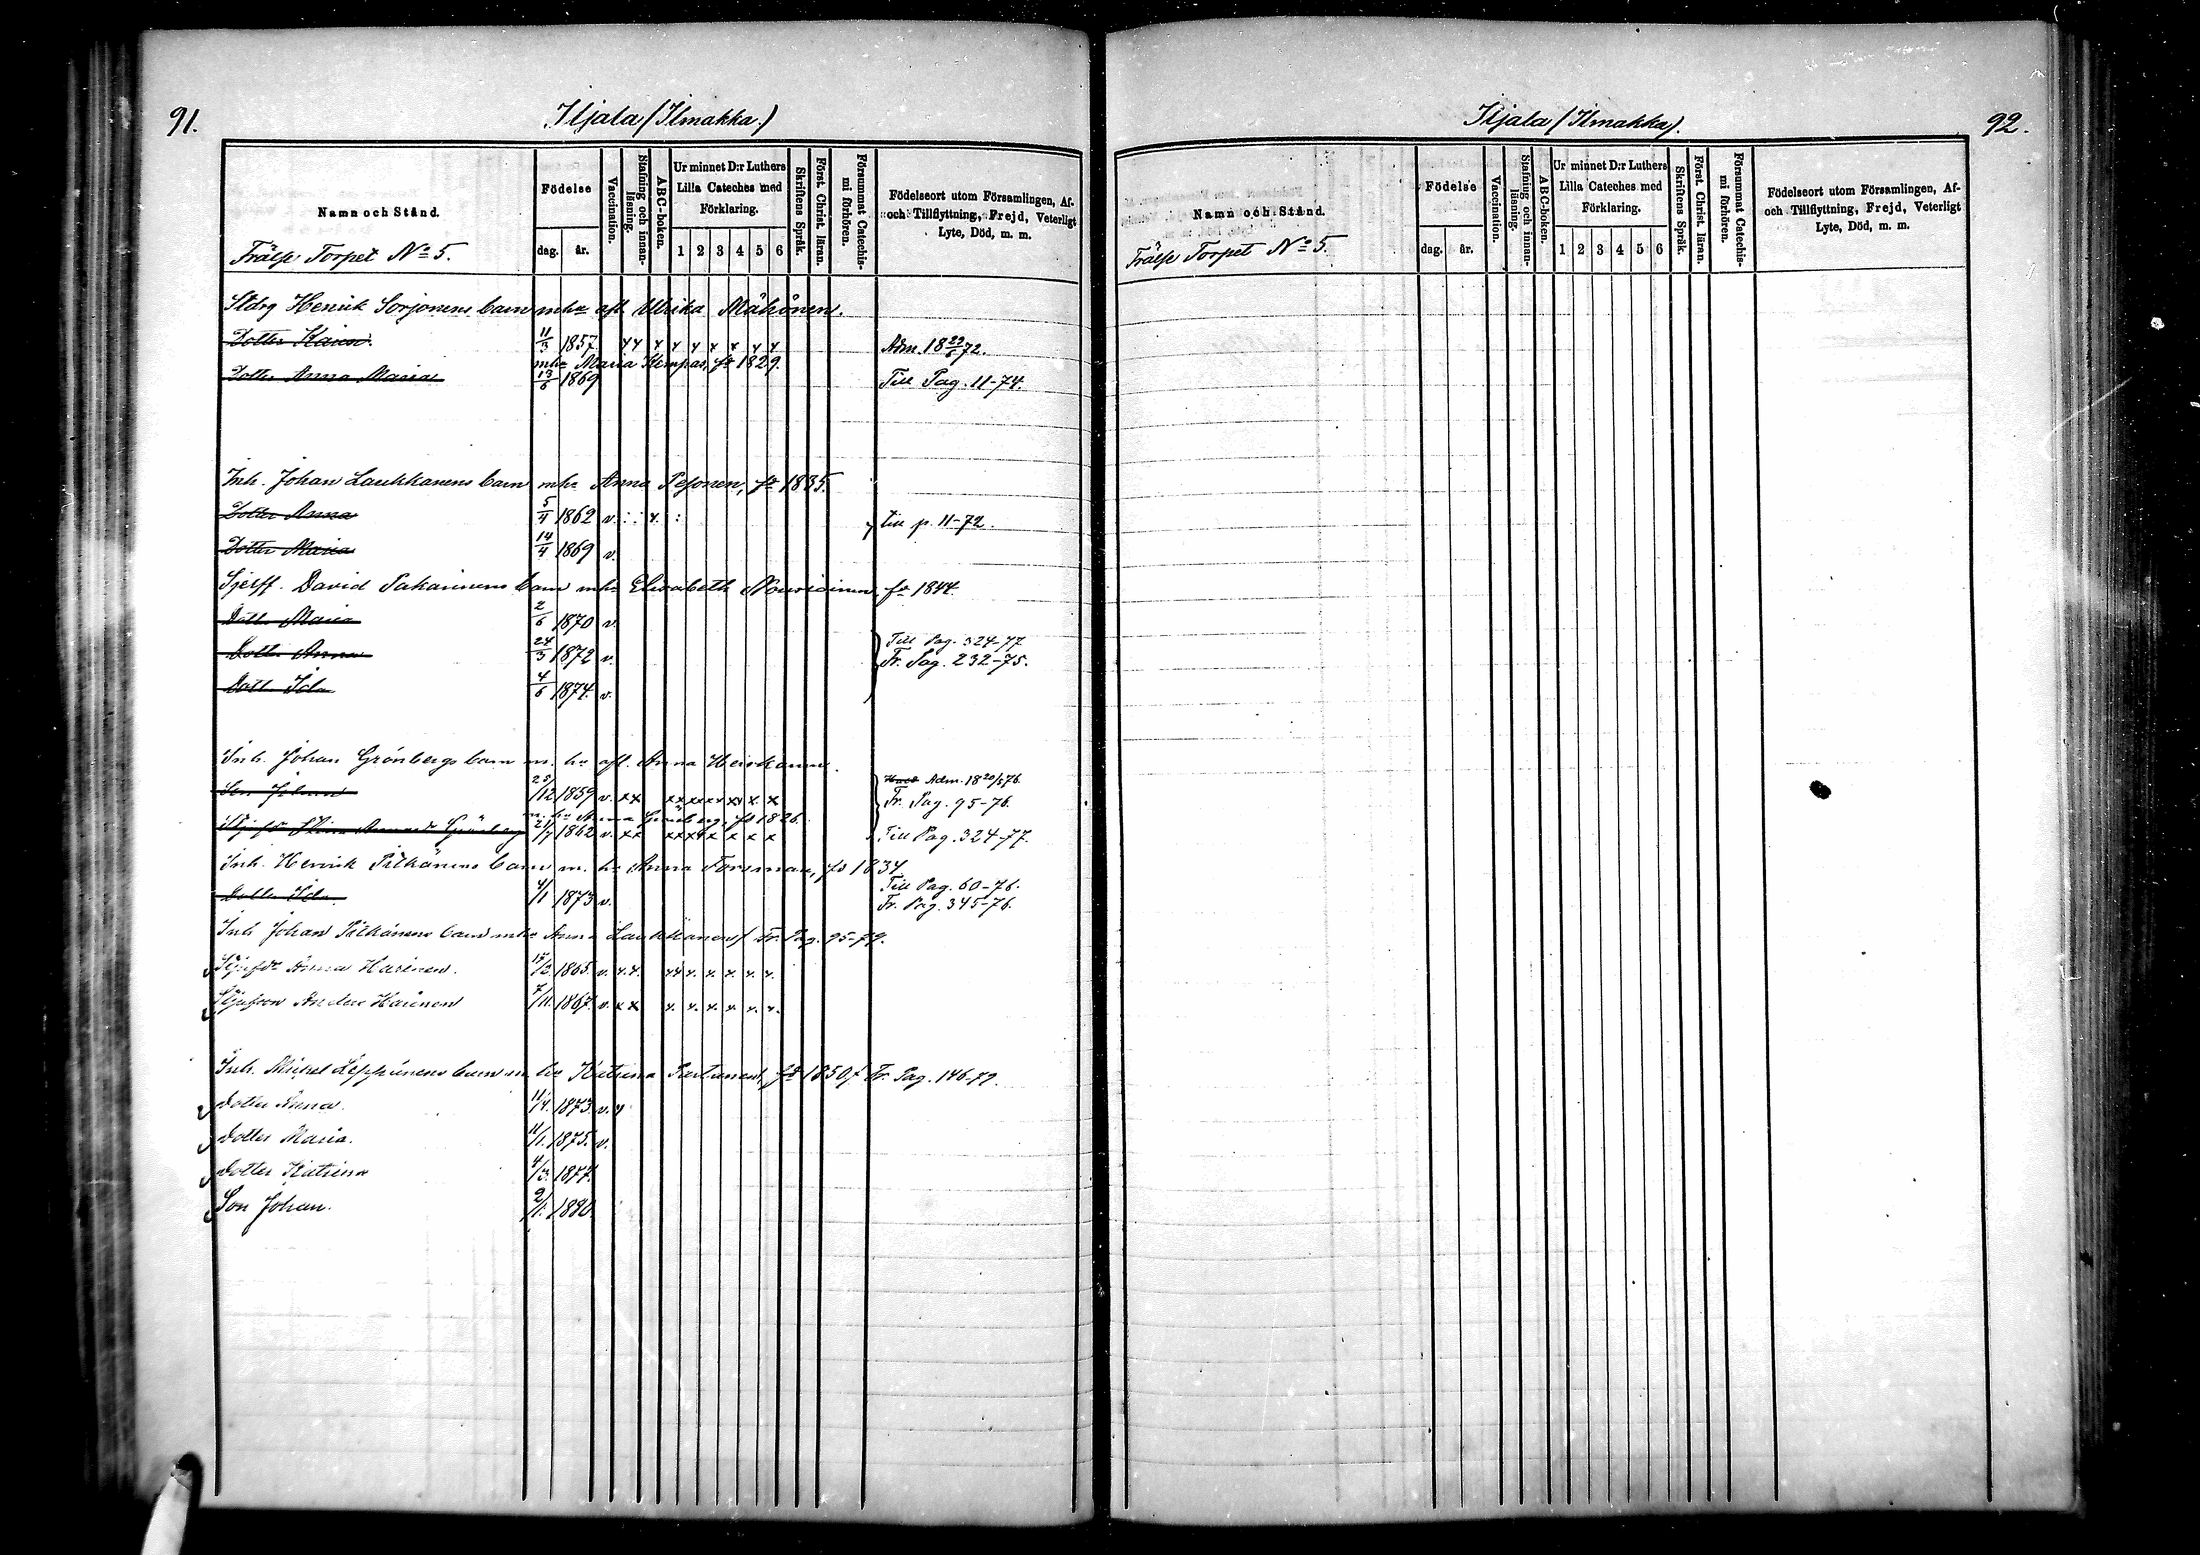 91.
Iljala (Ilmakka.)
Namn och Stånd.
Frälse Torpet No 5.
Födelse
dag. år.
Vaccination.
Stafning och innan-läsning.
ABC-boken.
Ur minnet D:r Luthers Lilla Cateches med Förklaring.
1 2 3 4 5 6
Skriftens Språk.
Först. Christ. läran.
Försummat Catechis-mi förhören.
Födelseort utom Församlingen, Af- och Tillflyttning, Frejd, Veterligt Lyte, Död, m. m.
Henrik Sorjonens barn mhu afl. Ulrika Mähönen.
Dotter 11/3 1857. Adm. 18 72.
mhu Maria fd 1829.
Dotter Anna Maria 13/6 1869 Till Pag. 11-74.
Inh. Johan Laukkanens barn mhu Anna Pesonen, fd 1835.
Dotter Anna 5/4 1862 v. till p. 11-72.
Dotter Maria 14/4 1869 v.
David Pakarinens barn mhu Elisabeth fd 1844.
Dott. Maria 2/6 1870 v.
Till Pag. 324-77
Dott. Anna 24/3 1872 v. Fr. Pag. 232-75.
Dott. Ida 4/6 1874. v.
Inh. Johan Grönbergs barn m. hu afl. Anna Heiskanen.
Son Johan 25/12 1859 v. x x Adm. 18 76.
Fr. Pag. 95-76.
m. hu Anna Grönberg, fd 1826.
Grönberg 21/7 1862 v. x x Till Pag. 324-77.
Inh. Henrik Pitkänens barn m. hu Anna Forsman, fd 1834
Till Pag. 60-76.
Dotter Ida 4/1 1873 v. Fr. Pag. 345-76.
Inh. Johan Pitkänens barn mhu Anna Laukkanen Fr. Pag. 95-79.
Anna Harinen. 15/2 1865. v.
Styfson Harinen 7/11. 1867. v. x x
Inh. Mickel Leppänens barn m. hu Katrina Partanen, fd 1850 Fr. Pag. 146-79.
dotter Anna. 11/4. 1873. v.
dotter Maria. 11/1. 1875. v.
dotter Katrina 4/3. 1877.
Son Johan. 2/1. 1880.
Iljala (Ilmakka).
92.
Namn och Stånd.
Frälse Torpet No 5.
Födelse
dag. år.
Vaccination.
Stafning och innan-läsning.
ABC-boken.
Ur minnet D:r Luthers Lilla Cateches med Förklaring.
1 2 3 4 5 6
Skriftens Språk.
Först. Christ. läran.
Försummat Catechis-mi förhören.
Födelseort utom Församlingen, Af- och Tillflyttning, Frejd, Veterligt Lyte, Död, m. m.